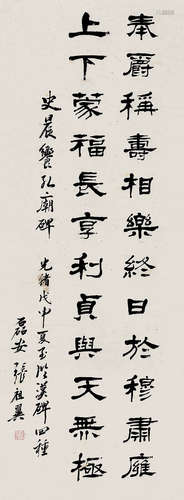 奉爵稱壽相樂終日於穆肅雍
上下蒙福長享利貞與天無極
史晨饗孔廟碑 光緒戊申夏五臨漢碑四種
磊安張祖翼